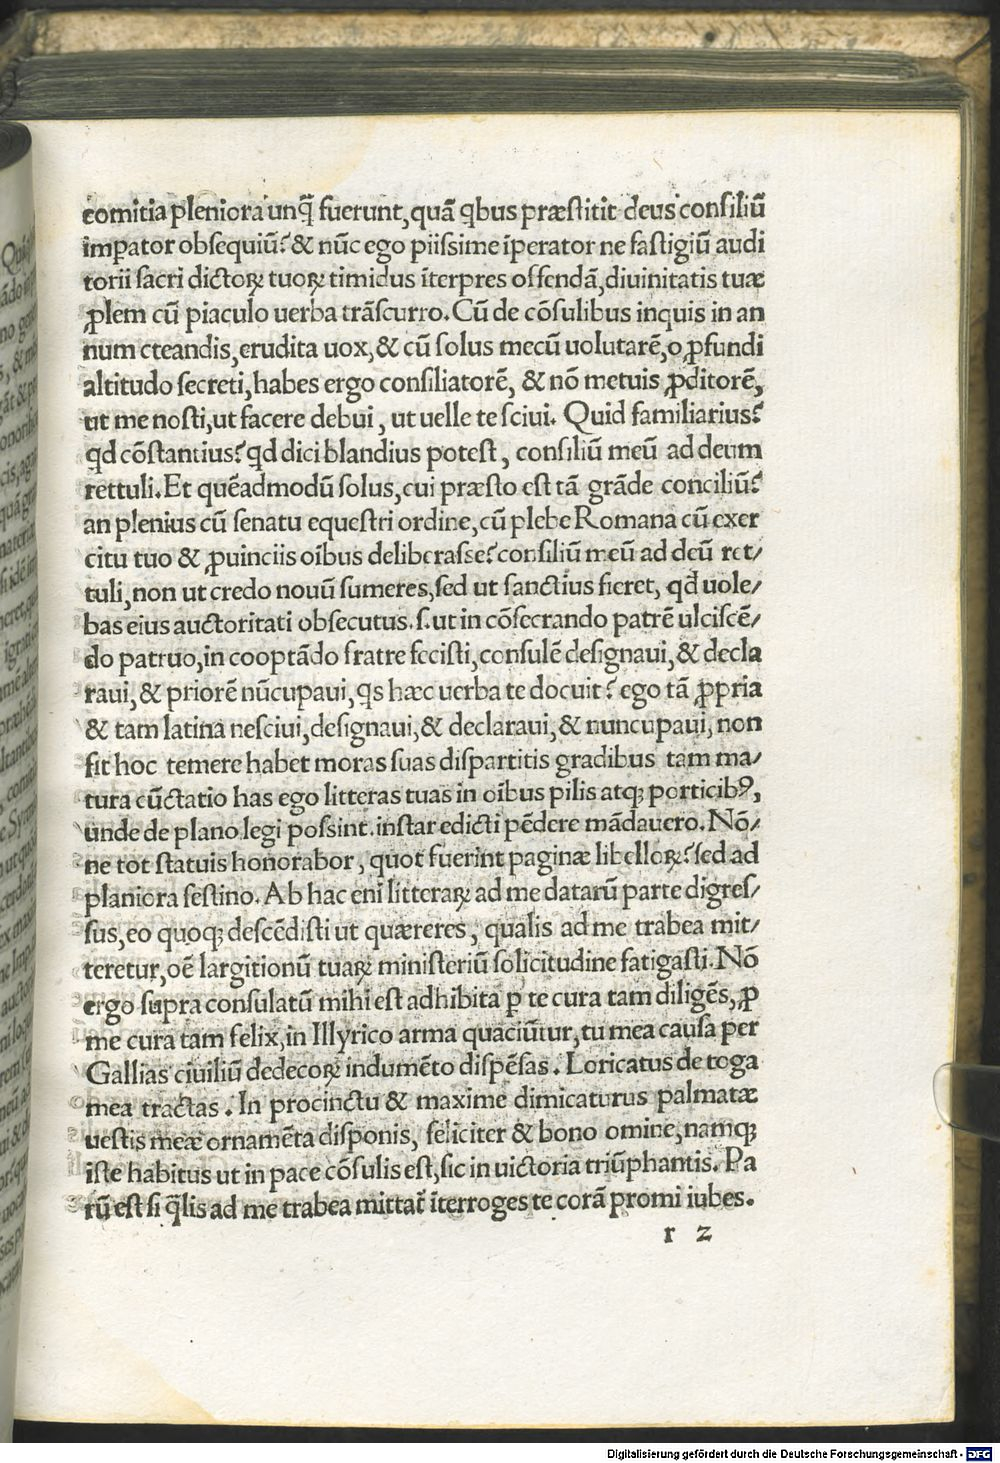 comitia pleniora unq̃ fuerunt, quã qbus præstitit deus consiliũ
imꝑator obsequiũ? & nũc ego piissime ĩperator ne fastigiũ audi
torii sacri dictoꝝ tuoꝝ timidus ĩterpres offendã, diuinitatis tuæ
ꝓlem cũ piaculo uerba trãscurro. Cũ de cõsulibus inquis in an
num cteandis, erudita uox, & cũ solus mecũ uolutarẽ, o ꝓfundi
altitudo secreti, habes ergo consiliatorẽ, & nõ metuis ꝓditorẽ,
ut me nosti, ut facere debui, ut uelle te sciui. Quid familiarius?
qd cõstantius? qd dici blandius potest, consiliũ meũ ad deum
rettuli. Et quẽadmodũ solus, cui præsto est tã grãde conciliũ?
an plenius cũ senatu equestri ordine, cũ plebe Romana cũ exer
citu tuo & ꝓuinciis oĩbus deliberasse? consiliũ meũ ad deũ ret/
tuli, non ut credo nouũ sumeres, sed ut sanctius fieret, qd uole/
bas eius auctoritati obsecutus. s. ut in cõsecrando patrẽ ulciscẽ/
do patruo, in cooptãdo fratre fecisti, consulẽ designaui, & decla
raui, & priorẽ nũcupaui, qs hæc uerba te docuit? ego tã ꝓpria
& tam latina nesciui, designaui, & declaraui, & nuncupaui, non
fit hoc temere habet moras suas dispartitis gradibus tam ma/
tura cũctatio has ego litteras tuas in oĩbus pilis atqꝫ porticibꝰ,
unde de plano legi possint. instar edicti pẽdere mãdauero. Nõ/
ne tot statuis honorabor, quot fuerint paginæ libelloꝝ? sed ad
planiora festino. Ab hac eni litteraꝝ ad me datarũ parte digres/
sus, eo quoqꝫ descẽdisti ut quæreres, qualis ad me trabea mit/
teretur, oẽ largitionũ tuaꝝ ministeriũ solicitudine fatigasti. Nõ
ergo supra consulatũ mihi est adhibita ꝑ te cura tam diligẽs, ꝓ
me cura tam felix, in Illyrico arma quaciũtur, tu mea causa per
Gallias ciuiliũ dedecoꝝ indumẽto dispẽsas. Loricatus de toga
mea tractas. In procinctu & maxime dimicaturus palmatæ
uestis meæ ornamẽta disponis, feliciter & bono omine, namqꝫ
iste habitus ut in pace cõsulis est, sic in uictoria triũphantis. Pa
rũ est si q̃lis ad me trabea mittat̃ ĩterroges te corã promi iubes.
r 2
Digitalisierung gefördert durch die Deutsche Forschungsgemeinschaft - DFG